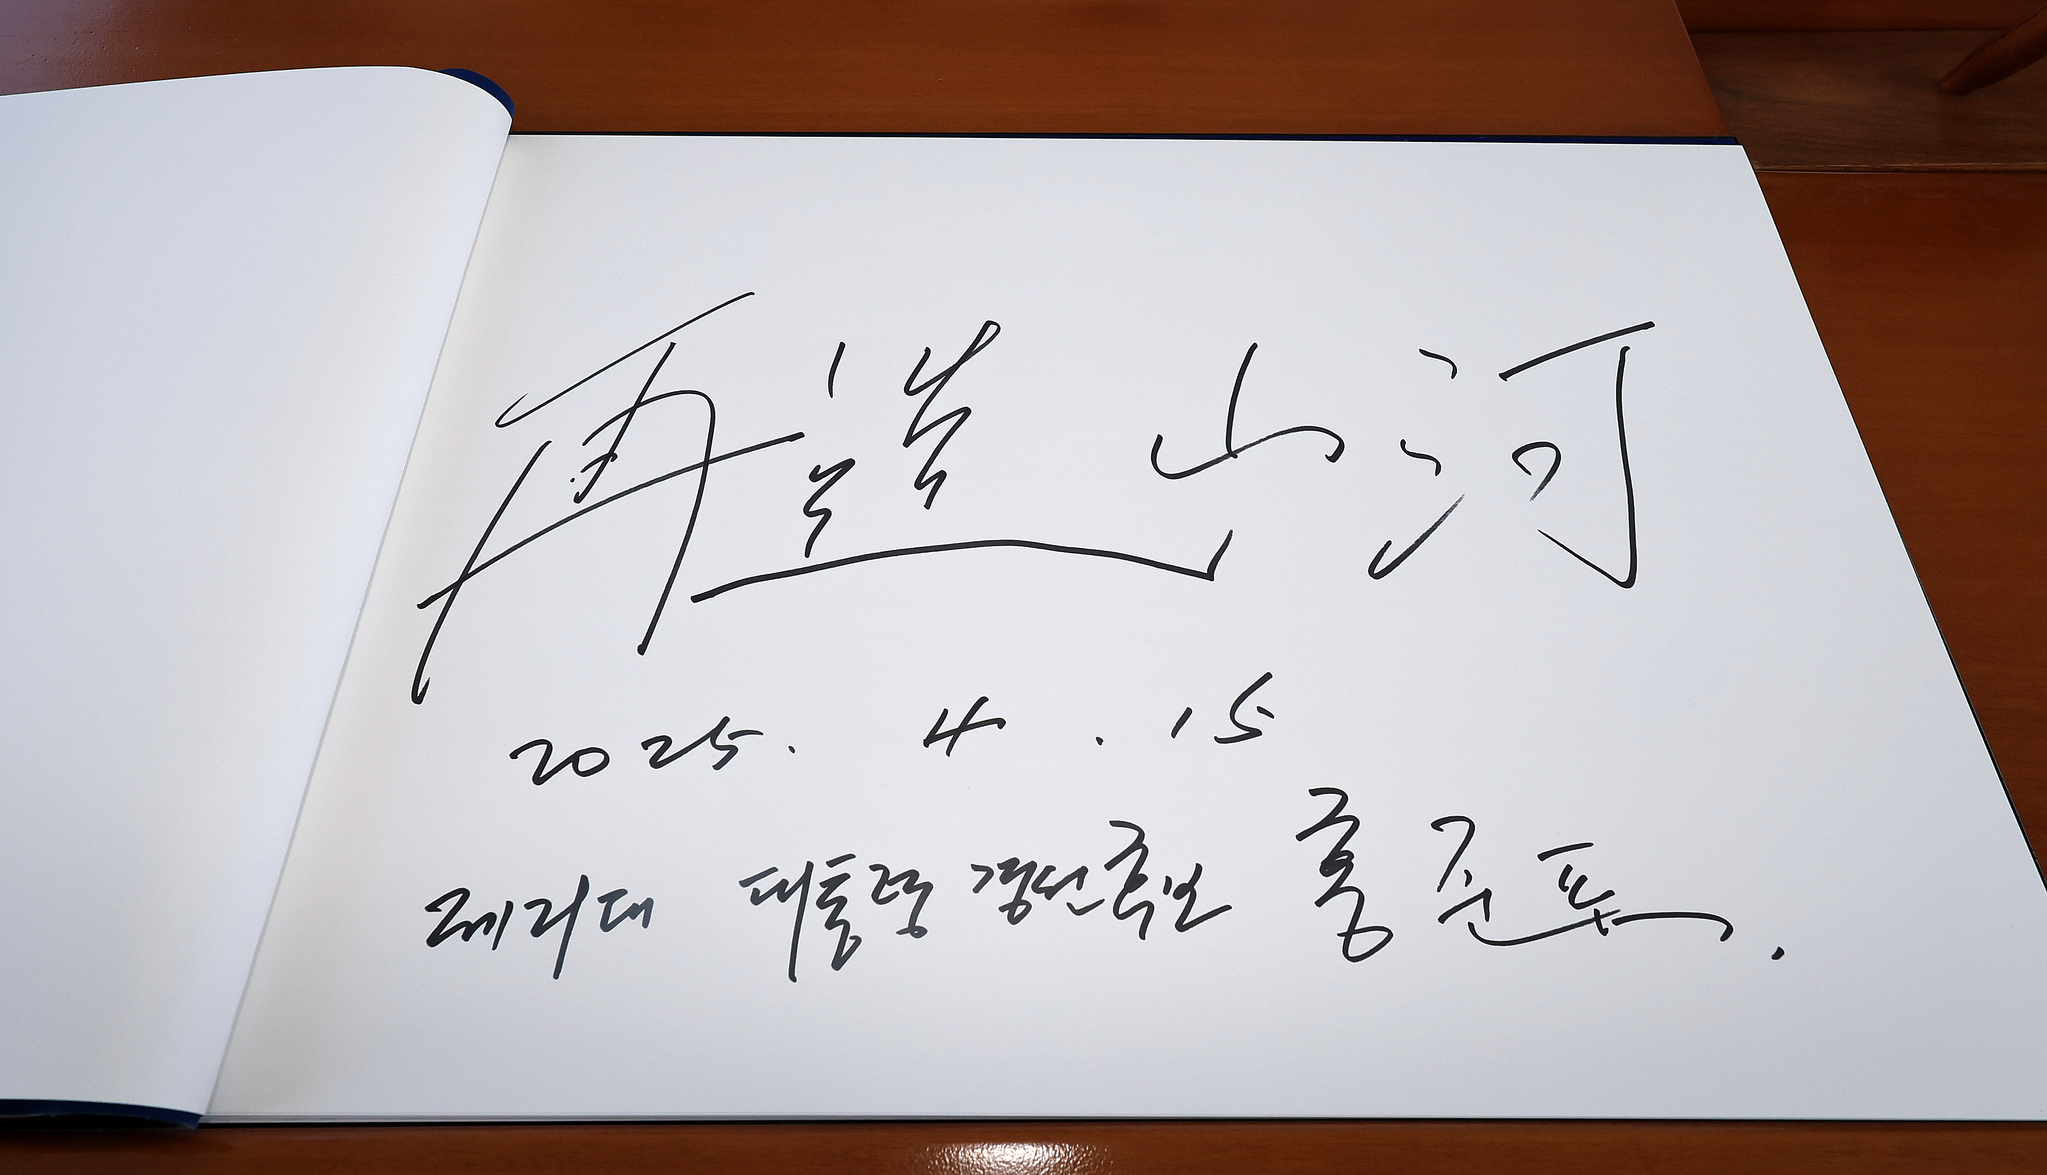 再造山河
2025. 4. 15
제21대 대통령 경선후보 홍준표.